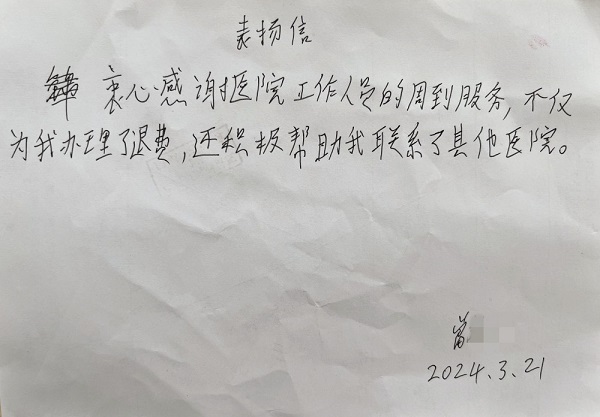 表扬信
衷心感谢医院工作人员的周到服务,不仅
为我办理了退费,还积极帮助我联系了其他医院。
2024.3.21